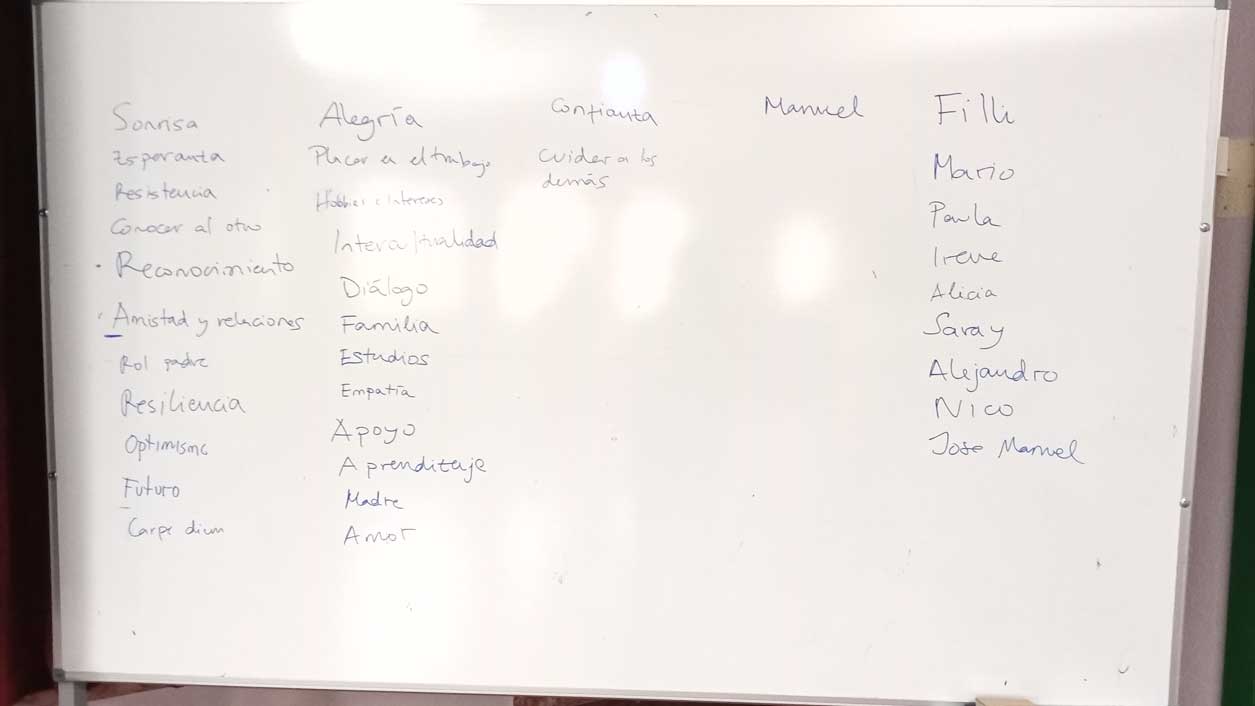 Sonrisa
Esperanza
Resistencia
Conocer al otro
Reconocimiento
Amistad y relaciones
Rol padre
Resiliencia
Optimismo
Futuro
Carpe dium
Alegría
Placer en el trabajo
Hobbies e Intereses
Interculturalidad
Diálogo
Familia
Estudios
Empatía
Apoyo
Aprendizaje
Madre
Amor
Confianza
Cuidar a los
demás
Manuel
Filli
Mario
Paula
Irene
Alicia
Saray
Alejandro
Nico
Jose Manuel